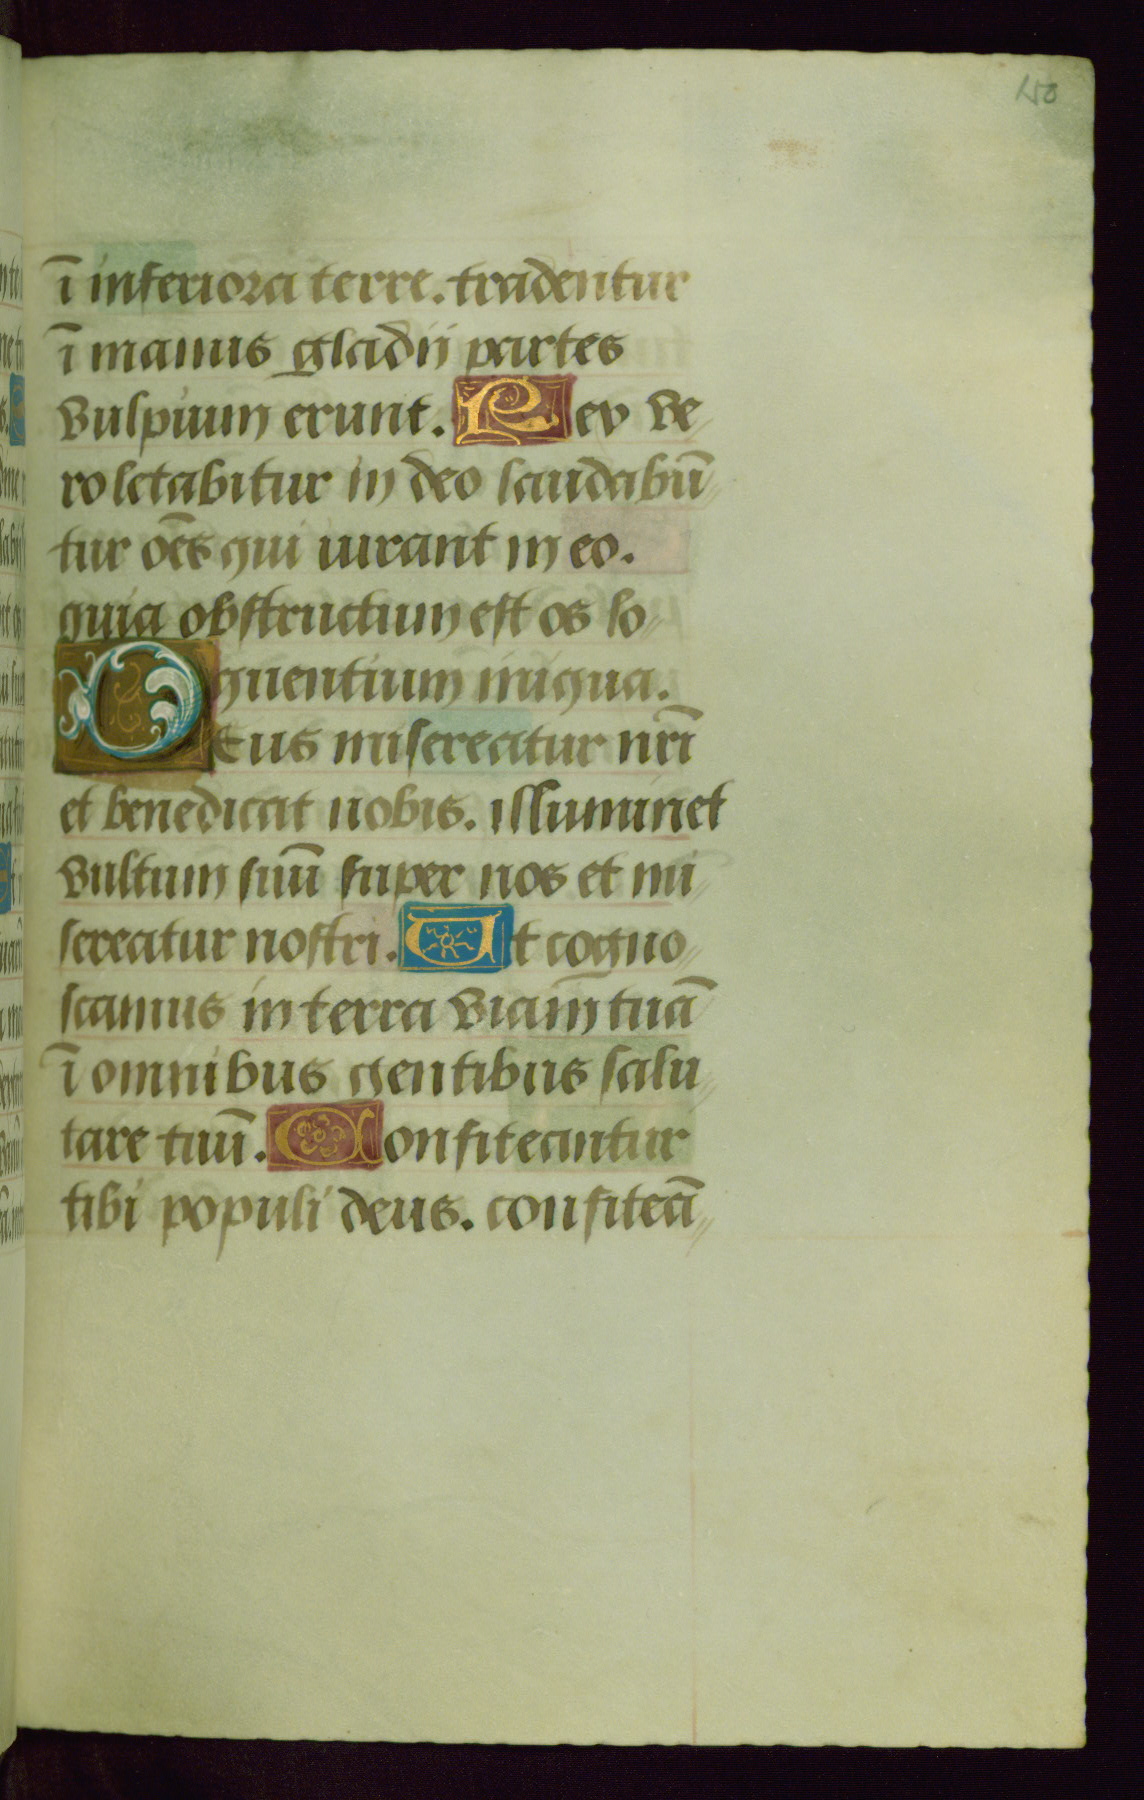 ī inferiora terre. tradentur
ī manus gladii partes
vulpium erunt. Rex ve
ro letabitur in deo laudabū
tur oēs qui iurant in eo.
quia obstructum est os lo
quentium iniqua.
Deus misereatur nrī
et benedicat nobis. illuminet
vultum suū super nos et mi
sereatur nostri. Ut cogno
scamus in terra viam tuā
ī omnibus gentibus salu
tare tuū. Confiteantur
tibi populi deus. confiteā